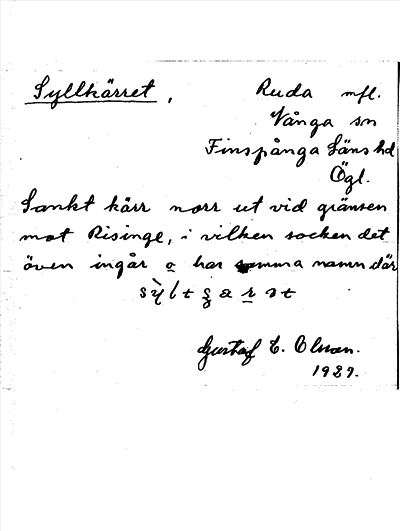 Syllkärret,
Ruda mfl.
Vånga sn
Finspånga Läns hd
Ögl.
Sankt kärr norr ut vid gränsen
mot Risinge, i vilken socken det
även ingår o har samma namn där
Gustaf E. Olsson.